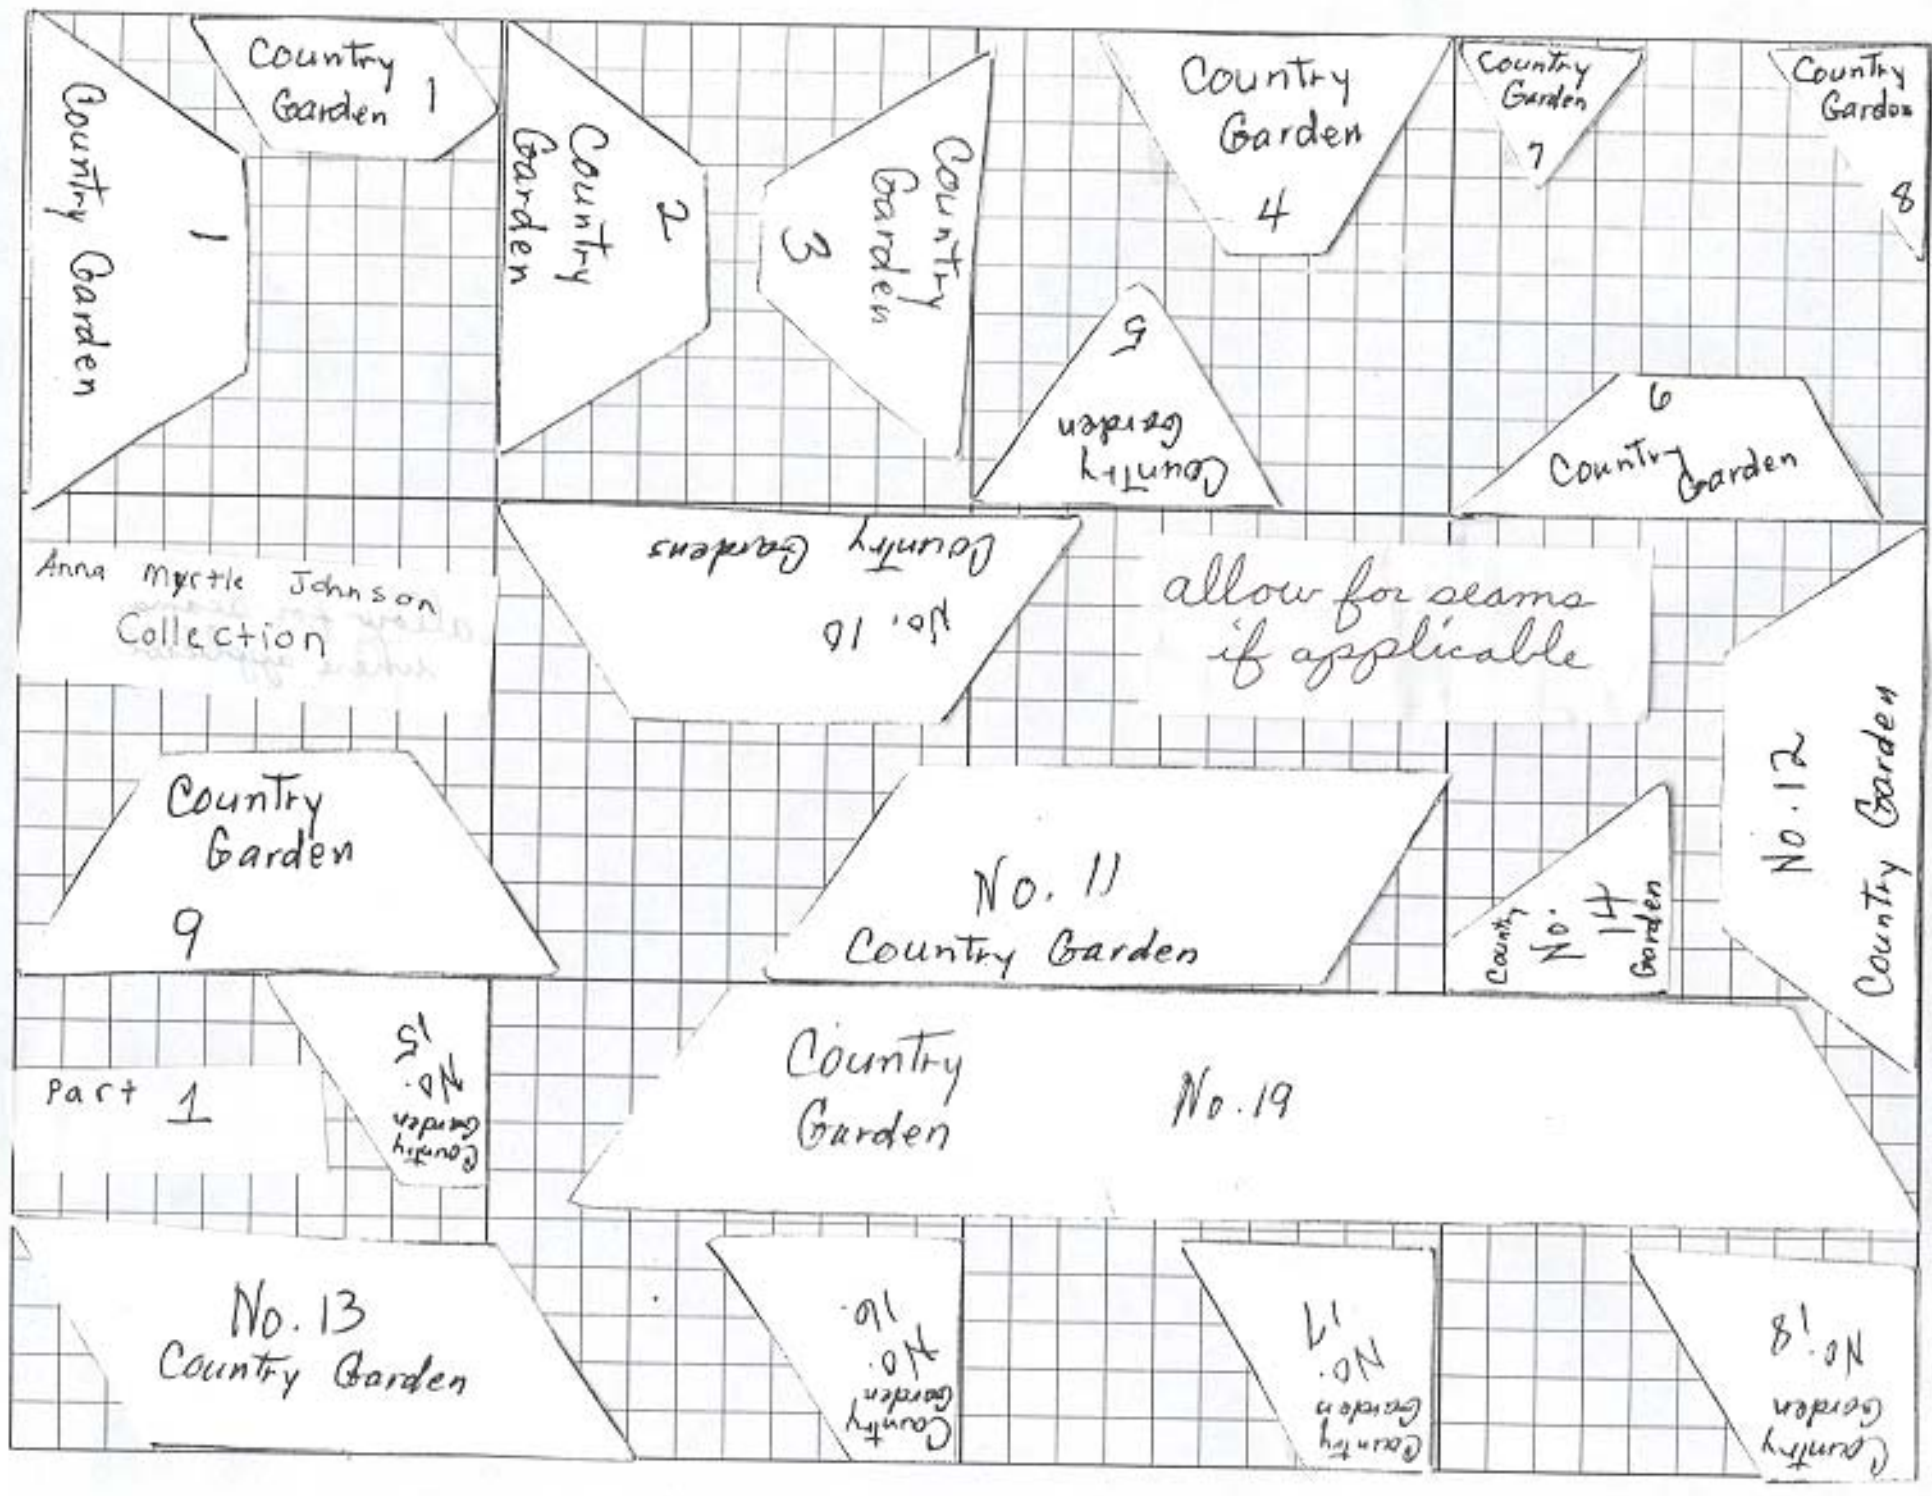 Country Garden
1
Country
Garden 1
Country
Garden
2
Country
Garden
3
Country
Garden
4
Country
Garden
5
Country
Garden
7
Country
Garden
8
6
Country
Garden
Anna Myrtle Johnson
Collection
Country Gardens
No. 10
allow for seams
if applicable
No. 12
Country Garden
Country
Garden
9
No. 11
Country Garden
Country
No.
14
Garden
Part 1
Country
Garden
No.
15
Country
Garden
No. 19
No. 13
Country Garden
Country
Garden
No.
16.
Country
Garden
No.
17
Country
Garden
No. 18